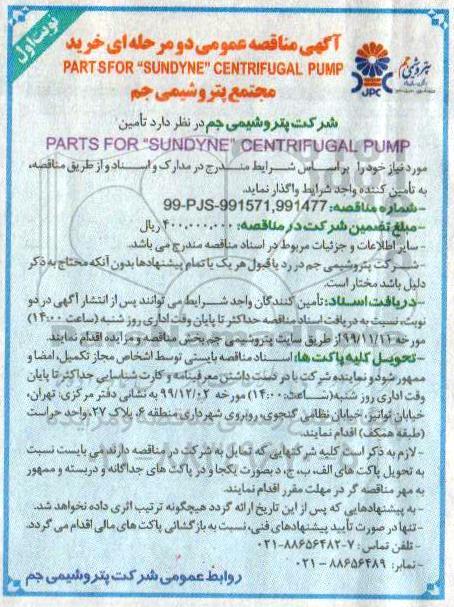 نوبت اول
آگهی مناقصه عمومی دو مرحله ای خرید
PARTS FOR "SUNDYNE" CENTRIFUGAL PUMP
مجتمع پتروشیمی جم
JPC
پتروشیمی جم
شرکت پتروشیمی جم در نظر دارد تأمین
PARTS FOR "SUNDYNE" CENTRIFUGAL PUMP
مورد نیاز خود را بر اساس شرایط مندرج در مدارک و اسناد و از طریق مناقصه،
به تأمین کننده واجد شرایط واگذار نماید.
-شماره مناقصه: 99-PJS-991571,991477
-مبلغ تضمین شرکت در مناقصه: ۴۰۰,۰۰۰,۰۰۰ ریال
- سایر اطلاعات و جزئیات مربوط در اسناد مناقصه مندرج می باشد.
-شرکت پتروشیمی جم در رد یا قبول هر یک یا تمام پیشنهادها بدون آنکه محتاج به ذکر
دلیل باشد مختار است.
-دریافت اسناد: تأمین کنندگان واجد شرایط می توانند پس از انتشار آگهی در دو
نوبت، نسبت به دریافت اسناد مناقصه حداکثر تا پایان وقت اداری روز شنبه (ساعت ۱۴:۰۰)
مورخه ۹۹/۱۱/۱۱ از طریق سایت پتروشیمی جم بخش مناقصه و مزایده اقدام نمایند.
-تحویل کلیه پاکت ها: اسناد مناقصه بایستی توسط اشخاص مجاز تکمیل، امضا و
ممهور شود و نماینده شرکت با در دست داشتن معرفینامه و کارت شناسایی حداکثر تا پایان
وقت اداری روز شنبه (ساعت: ۱۴:۰۰) مورخه ۹۹/۱۲/۰۲ به نشانی دفتر مرکزی: تهران،
خیابان توانیر، خیابان نظامی گنجوی، روبروی شهرداری منطقه ۶، پلاک ۲۷، واحد حراست
(طبقه همکف) اقدام نمایند.
- لازم به ذکر است کلیه شرکتهایی که تمایل به شرکت در مناقصه دارند می بایست نسبت
به تحویل پاکت های الف، ب، ج، د بصورت یکجا و در پاکت های جداگانه و دربسته و ممهور
به مهر مناقصه گر در مهلت مقرر اقدام نمایند.
- به پیشنهادهایی که پس از این تاریخ ارائه گردد هیچگونه ترتیب اثری داده نخواهد شد.
-تنها در صورت تأیید پیشنهادهای فنی، نسبت به بازگشائی پاکت های مالی اقدام می گردد.
- تلفن تماس: ۷-۸۸۶۵۶۴۸۲-۰۲۱
- نمابر: ۸۸۶۵۶۴۸۹ - ۰۲۱
روابط عمومی شرکت پتروشیمی جم